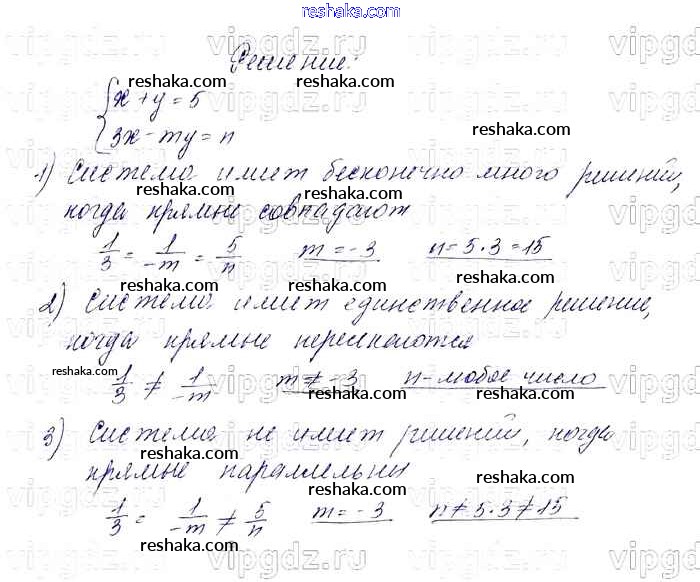 reshaka.com
Решение:
{x + y = 5
{3x - my = n
1) Система имеет бесконечно много решений,
когда прямые совпадают
1/3 = 1/-m = 5/n   m = -3   n = 5·3 = 15
2) Система имеет единственное решение,
когда прямые пересекаются
1/3 ≠ 1/-m   m ≠ -3   n - любое число
3) Система не имеет решений, когда
прямые параллельны
1/3 = 1/-m ≠ 5/n   m = -3   n ≠ 5·3 ≠ 15
vipgdz.ru
reshaka.com